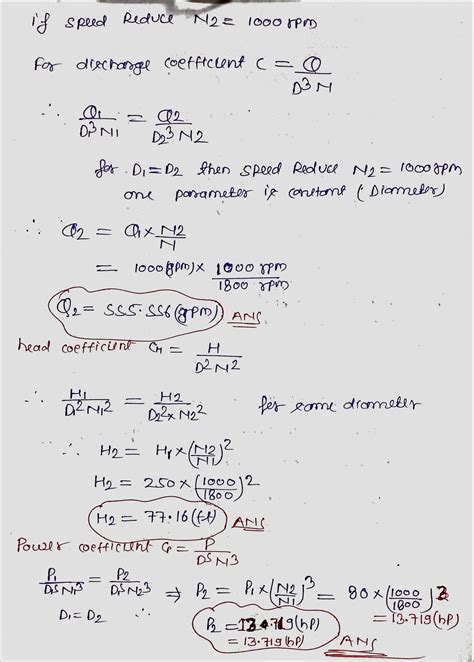 if speed Reduce N2 = 1000 rpm
For discharge coefficient C = Q / D³N
∴ Q1 / D1³N1 = Q2 / D2³N2
for D1 = D2 then speed Reduce N2 = 1000 rpm
one parameter is constant (Diameter)
∴ Q2 = Q1 × N2 / N
= 1000 (gpm) × 1000 rpm / 1800 rpm
Q2 = 555.556 (gpm) ANS
head coefficient CH = H / D²N²
∴ H1 / D1²N1² = H2 / D2²×N2² for same diameter
∴ H2 = H1 × (N2 / N1)²
H2 = 250 × (1000 / 1800)²
H2 = 77.16 (ft) ANS
Power coefficient C = P / D⁵N³
P1 / D⁵N1³ = P2 / D⁵N2³ ⇒ P2 = P1 × (N2 / N1)³ = 80 × (1000 / 1800)³
D1 = D2 ∴ = 13.719 (hP)
P2 = 13.719 (hP)
= 13.719 (hP) ANS